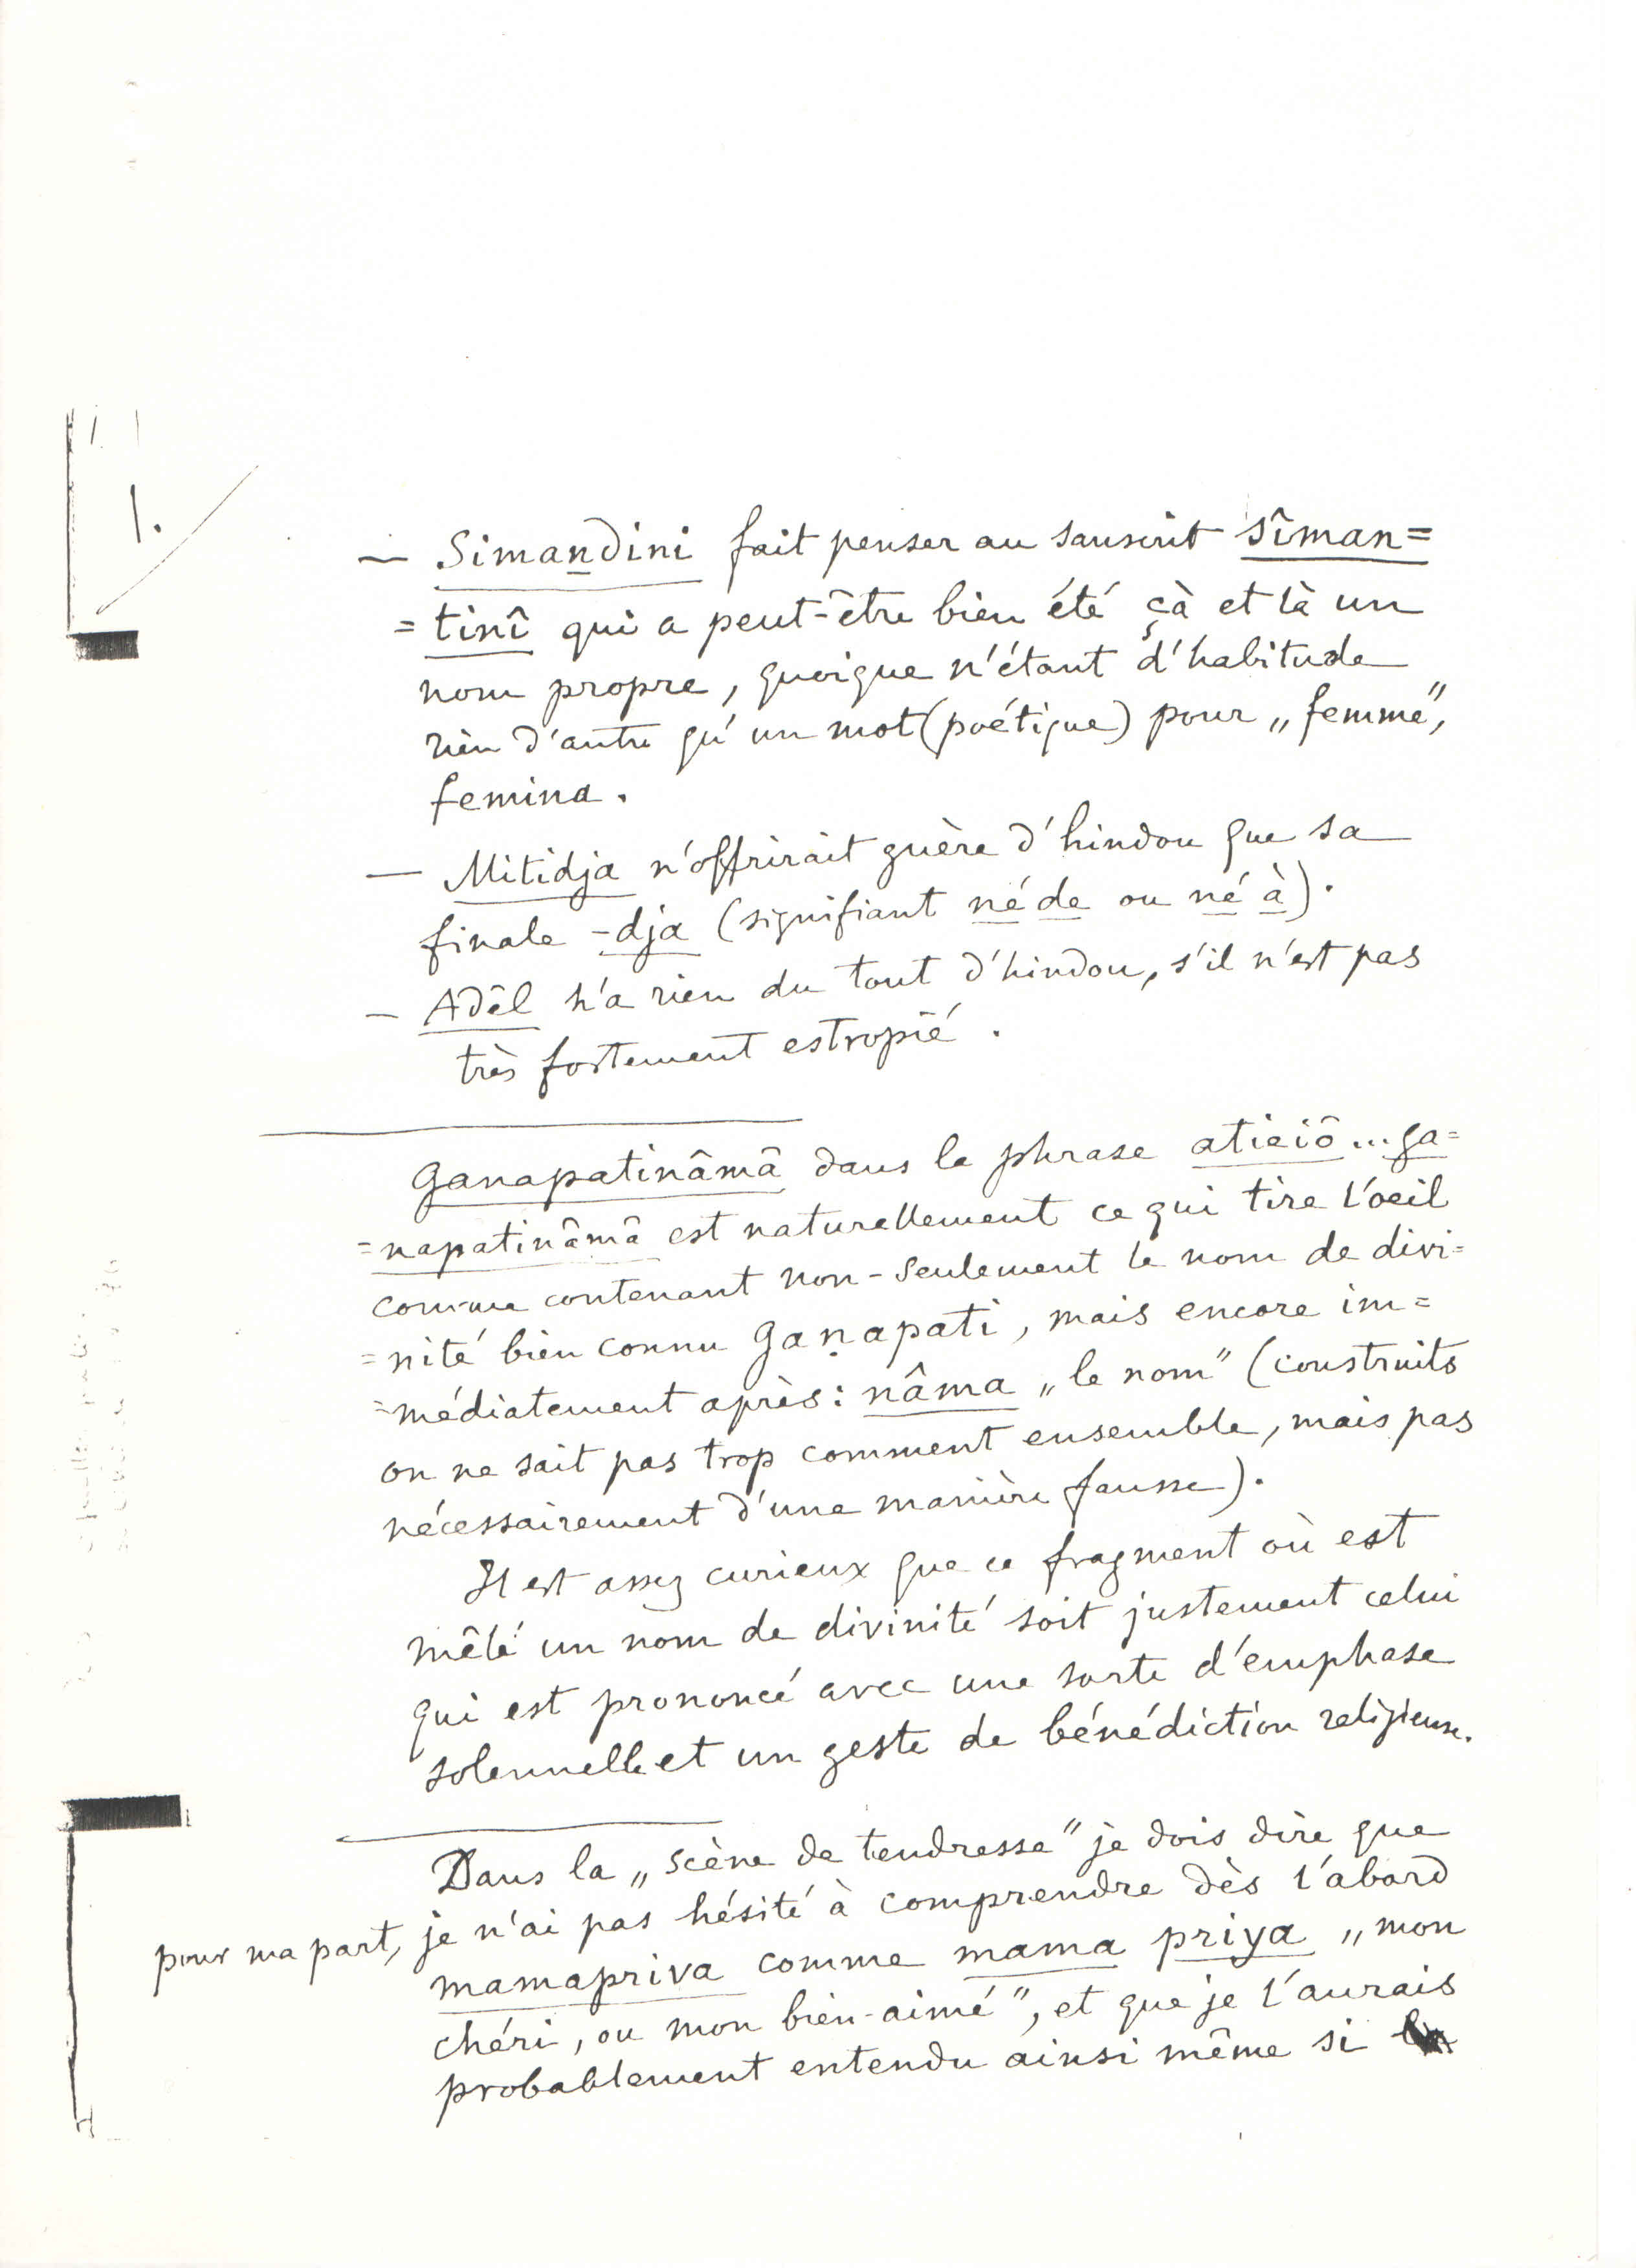 1.
— Simandini fait penser au sanscrit sîman=
=tinî qui a peut-être bien été çà et là un
nom propre, quoique n'étant d'habitude
rien d'autre qu'un mot (poétique) pour „femme",
femina.
— Mitidja n'offrirait guère d'hindou que sa
finale -dja (signifiant né de ou né à).
— Adêl n'a rien du tout d'hindou, s'il n'est pas
très fortement estropié.
Ganapatinâmâ dans la phrase atieiô...ga=
=napatinâmâ est naturellement ce qui tire l'oeil
comme contenant non-seulement le nom de divi=
=nité bien connu Gaṇapati, mais encore im=
=médiatement après: nâma „le nom" (construits
on ne sait pas trop comment ensemble, mais pas
nécessairement d'une manière fausse).
Il est assez curieux que ce fragment où est
mêlé un nom de divinité soit justement celui
qui est prononcé avec une sorte d'emphase
solennelle et un geste de bénédiction religieuse.
Dans la „scène de tendresse" je dois dire que
pour ma part, je n'ai pas hésité à comprendre dès l'abord
mamapriva comme mama priya „mon
chéri, ou mon bien-aimé", et que je l'aurais
probablement entendu ainsi même si